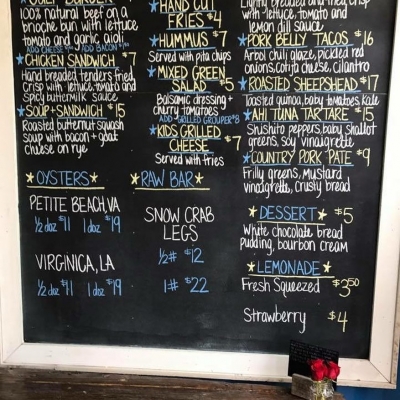 100% natural beef on a
brioche bun with lettuce
tomato and garlic aioli
ADD CHEESE ADD BACON
CHICKEN SANDWICH $7
Hand breaded tenders fried,
crisp with lettuce, tomato and
Spicy buttermilk sauce
SOUP + SANDWICH $15
Roasted butternut squash
soup with bacon + goat
cheese on rye
HAND CUT
FRIES $4
HUMMUS $7
Served with pita chips
MIXED GREEN
SALAD $5
Balsamic dressing +
cherry tomatoes
ADD GRILLED GROUPER $8
KIDS GRILLED
CHEESE $7
Served with fries
Lightly breaded and fried, crisp
with lettuce, tomato and
lemon dill sauce
PORK BELLY TACOS $16
Arbol chili glaze, pickled red
onions, cotija cheese, cilantro
ROASTED SHEEPSHEAD $17
Toasted quinoa, baby tomatoes, Kale
AHI TUNA TARTARE $15
Shishito peppers, baby shallot
greens, soy vinaigrette
COUNTRY PORK PATE $9
Frilly greens, mustard
vinaigrette, crusty bread
OYSTERS
PETITE BEACH, VA
1/2 doz $11 1 doz $19
VIRGINICA, LA
1/2 doz $11 1 doz $19
RAW BAR
SNOW CRAB
LEGS
1/2# $12
1# $22
DESSERT $5
White chocolate bread
pudding, bourbon cream
LEMONADE
Fresh Squeezed $3.50
Strawberry $4